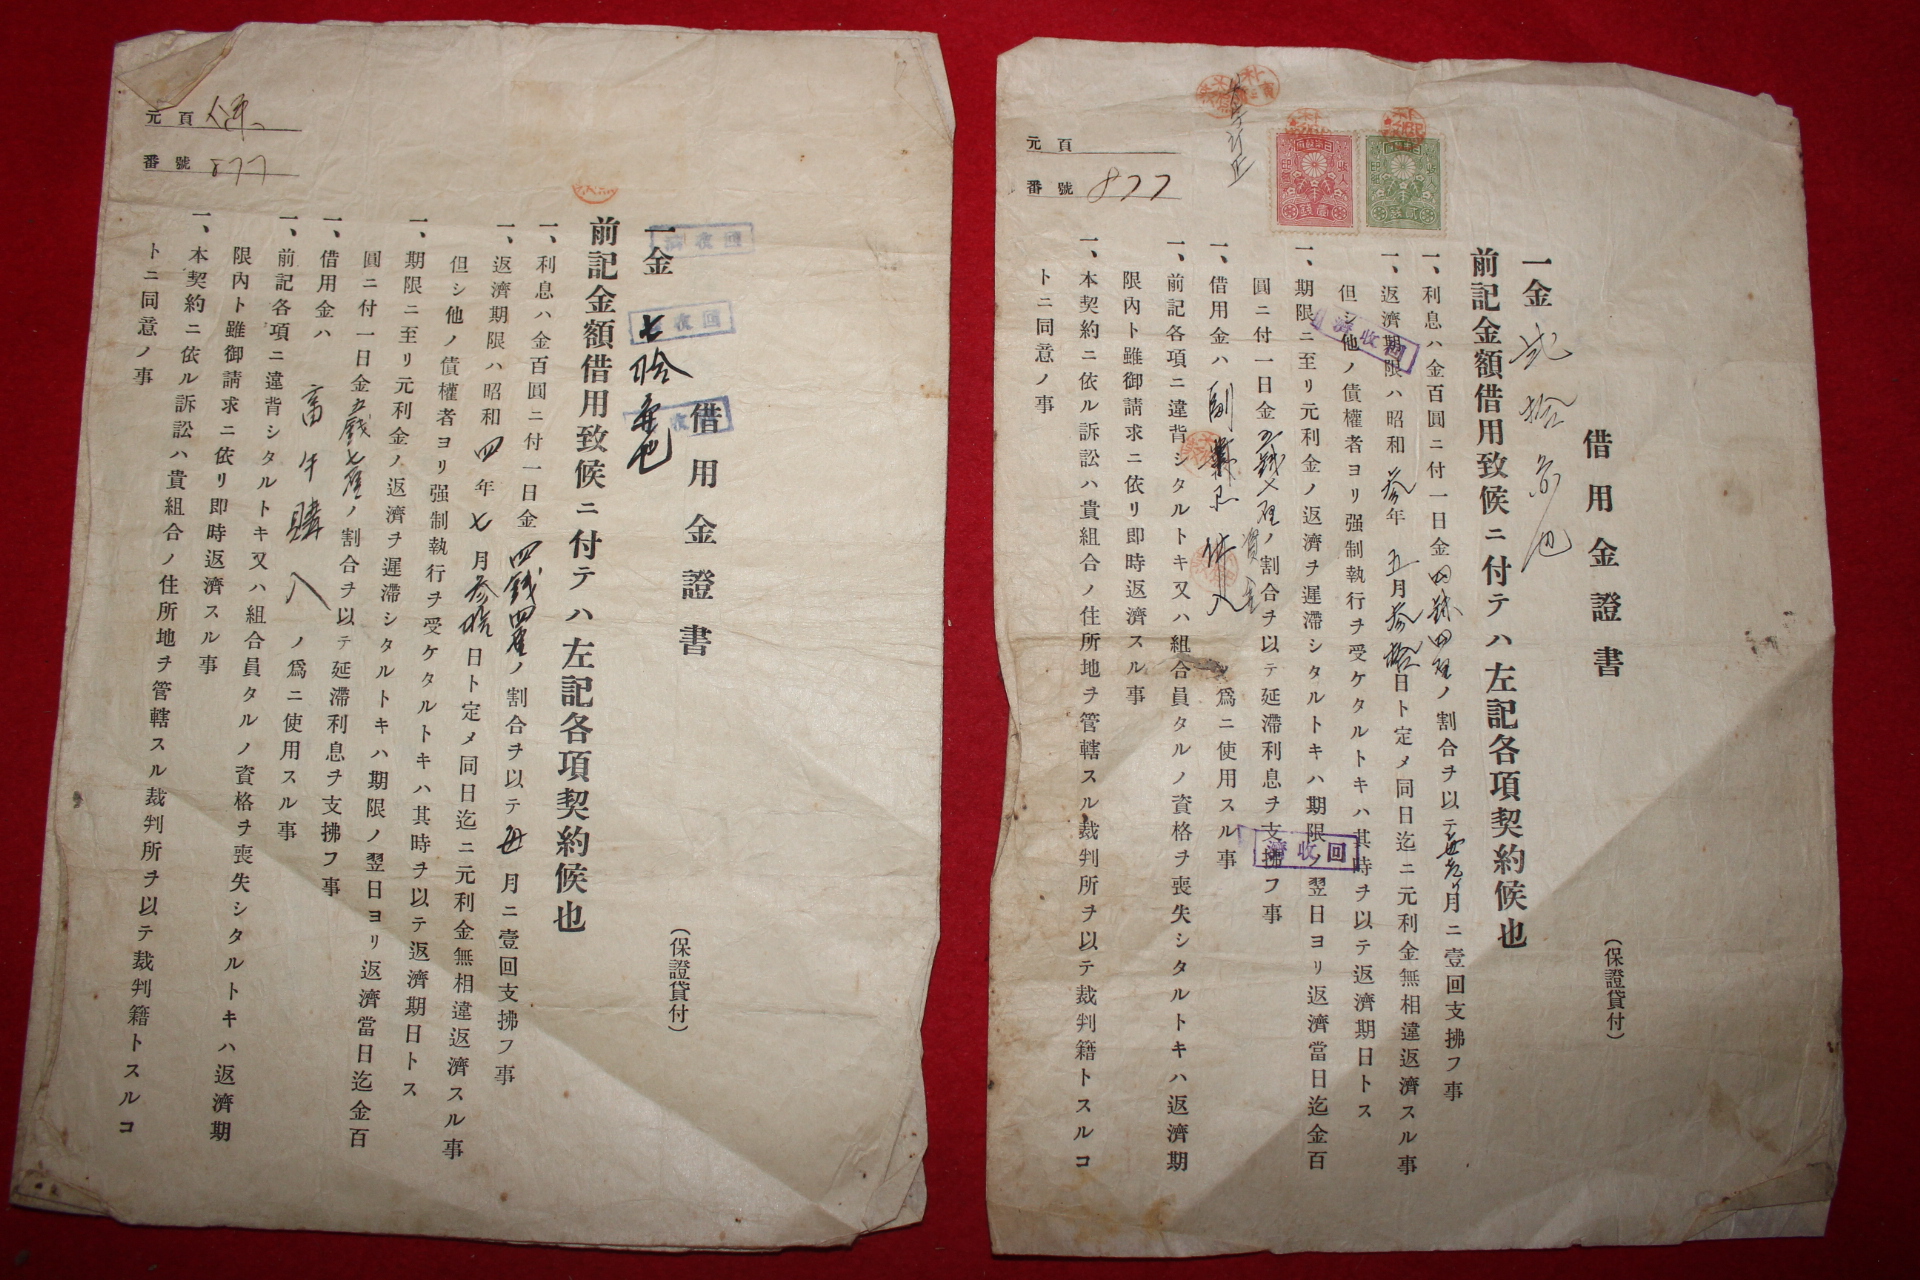 借用金證書
(保證貸付)
一金 七拾圓也
前記金額借用致候ニ付テハ左記各項契約候也
一、利息ハ金百圓ニ付一日金四錢四厘ノ割合ヲ以テ每月ニ壹回支拂フ事
一、返濟期限ハ昭和四年七月參拾日ト定メ同日迄ニ元利金無相違返濟スル事
但シ他ノ債權者ヨリ强制執行ヲ受ケタルトキハ其時ヲ以テ返濟期日トス
一、期限ニ至リ元利金ノ返濟ヲ遲滯シタルトキハ期限ノ翌日ヨリ返濟當日迄金百
圓ニ付一日金五錢七厘ノ割合ヲ以テ延滯利息ヲ支拂フ事
一、借用金ハ 畜牛購入 ノ爲ニ使用スル事
一、前記各項ニ違背シタルトキ又ハ組合員タルノ資格ヲ喪失シタルトキハ返濟期
限內ト雖御請求ニ依リ卽時返濟スル事
一、本契約ニ依ル訴訟ハ貴組合ノ住所地ヲ管轄スル裁判所ヲ以テ裁判籍トスルコ
トニ同意ノ事
元頁
番號 877
回收濟
回收濟
回收
借用金證書
(保證貸付)
一金 貳拾圓也
前記金額借用致候ニ付テハ左記各項契約候也
一、利息ハ金百圓ニ付一日金四錢四厘ノ割合ヲ以テ每月ニ壹回支拂フ事
一、返濟期限ハ昭和參年五月參拾日ト定メ同日迄ニ元利金無相違返濟スル事
但シ他ノ債權者ヨリ强制執行ヲ受ケタルトキハ其時ヲ以テ返濟期日トス
一、期限ニ至リ元利金ノ返濟ヲ遲滯シタルトキハ期限ノ翌日ヨリ返濟當日迄金百
圓ニ付一日金五錢七厘ノ割合ヲ以テ延滯利息ヲ支拂フ事
一、借用金ハ副業 資金 爲ニ使用スル事
一、前記各項ニ違背シタルトキ又ハ組合員タルノ資格ヲ喪失シタルトキハ返濟期
限內ト雖御請求ニ依リ卽時返濟スル事
一、本契約ニ依ル訴訟ハ貴組合ノ住所地ヲ管轄スル裁判所ヲ以テ裁判籍トスルコ
トニ同意ノ事
元頁
番號 877
回收濟
回收濟